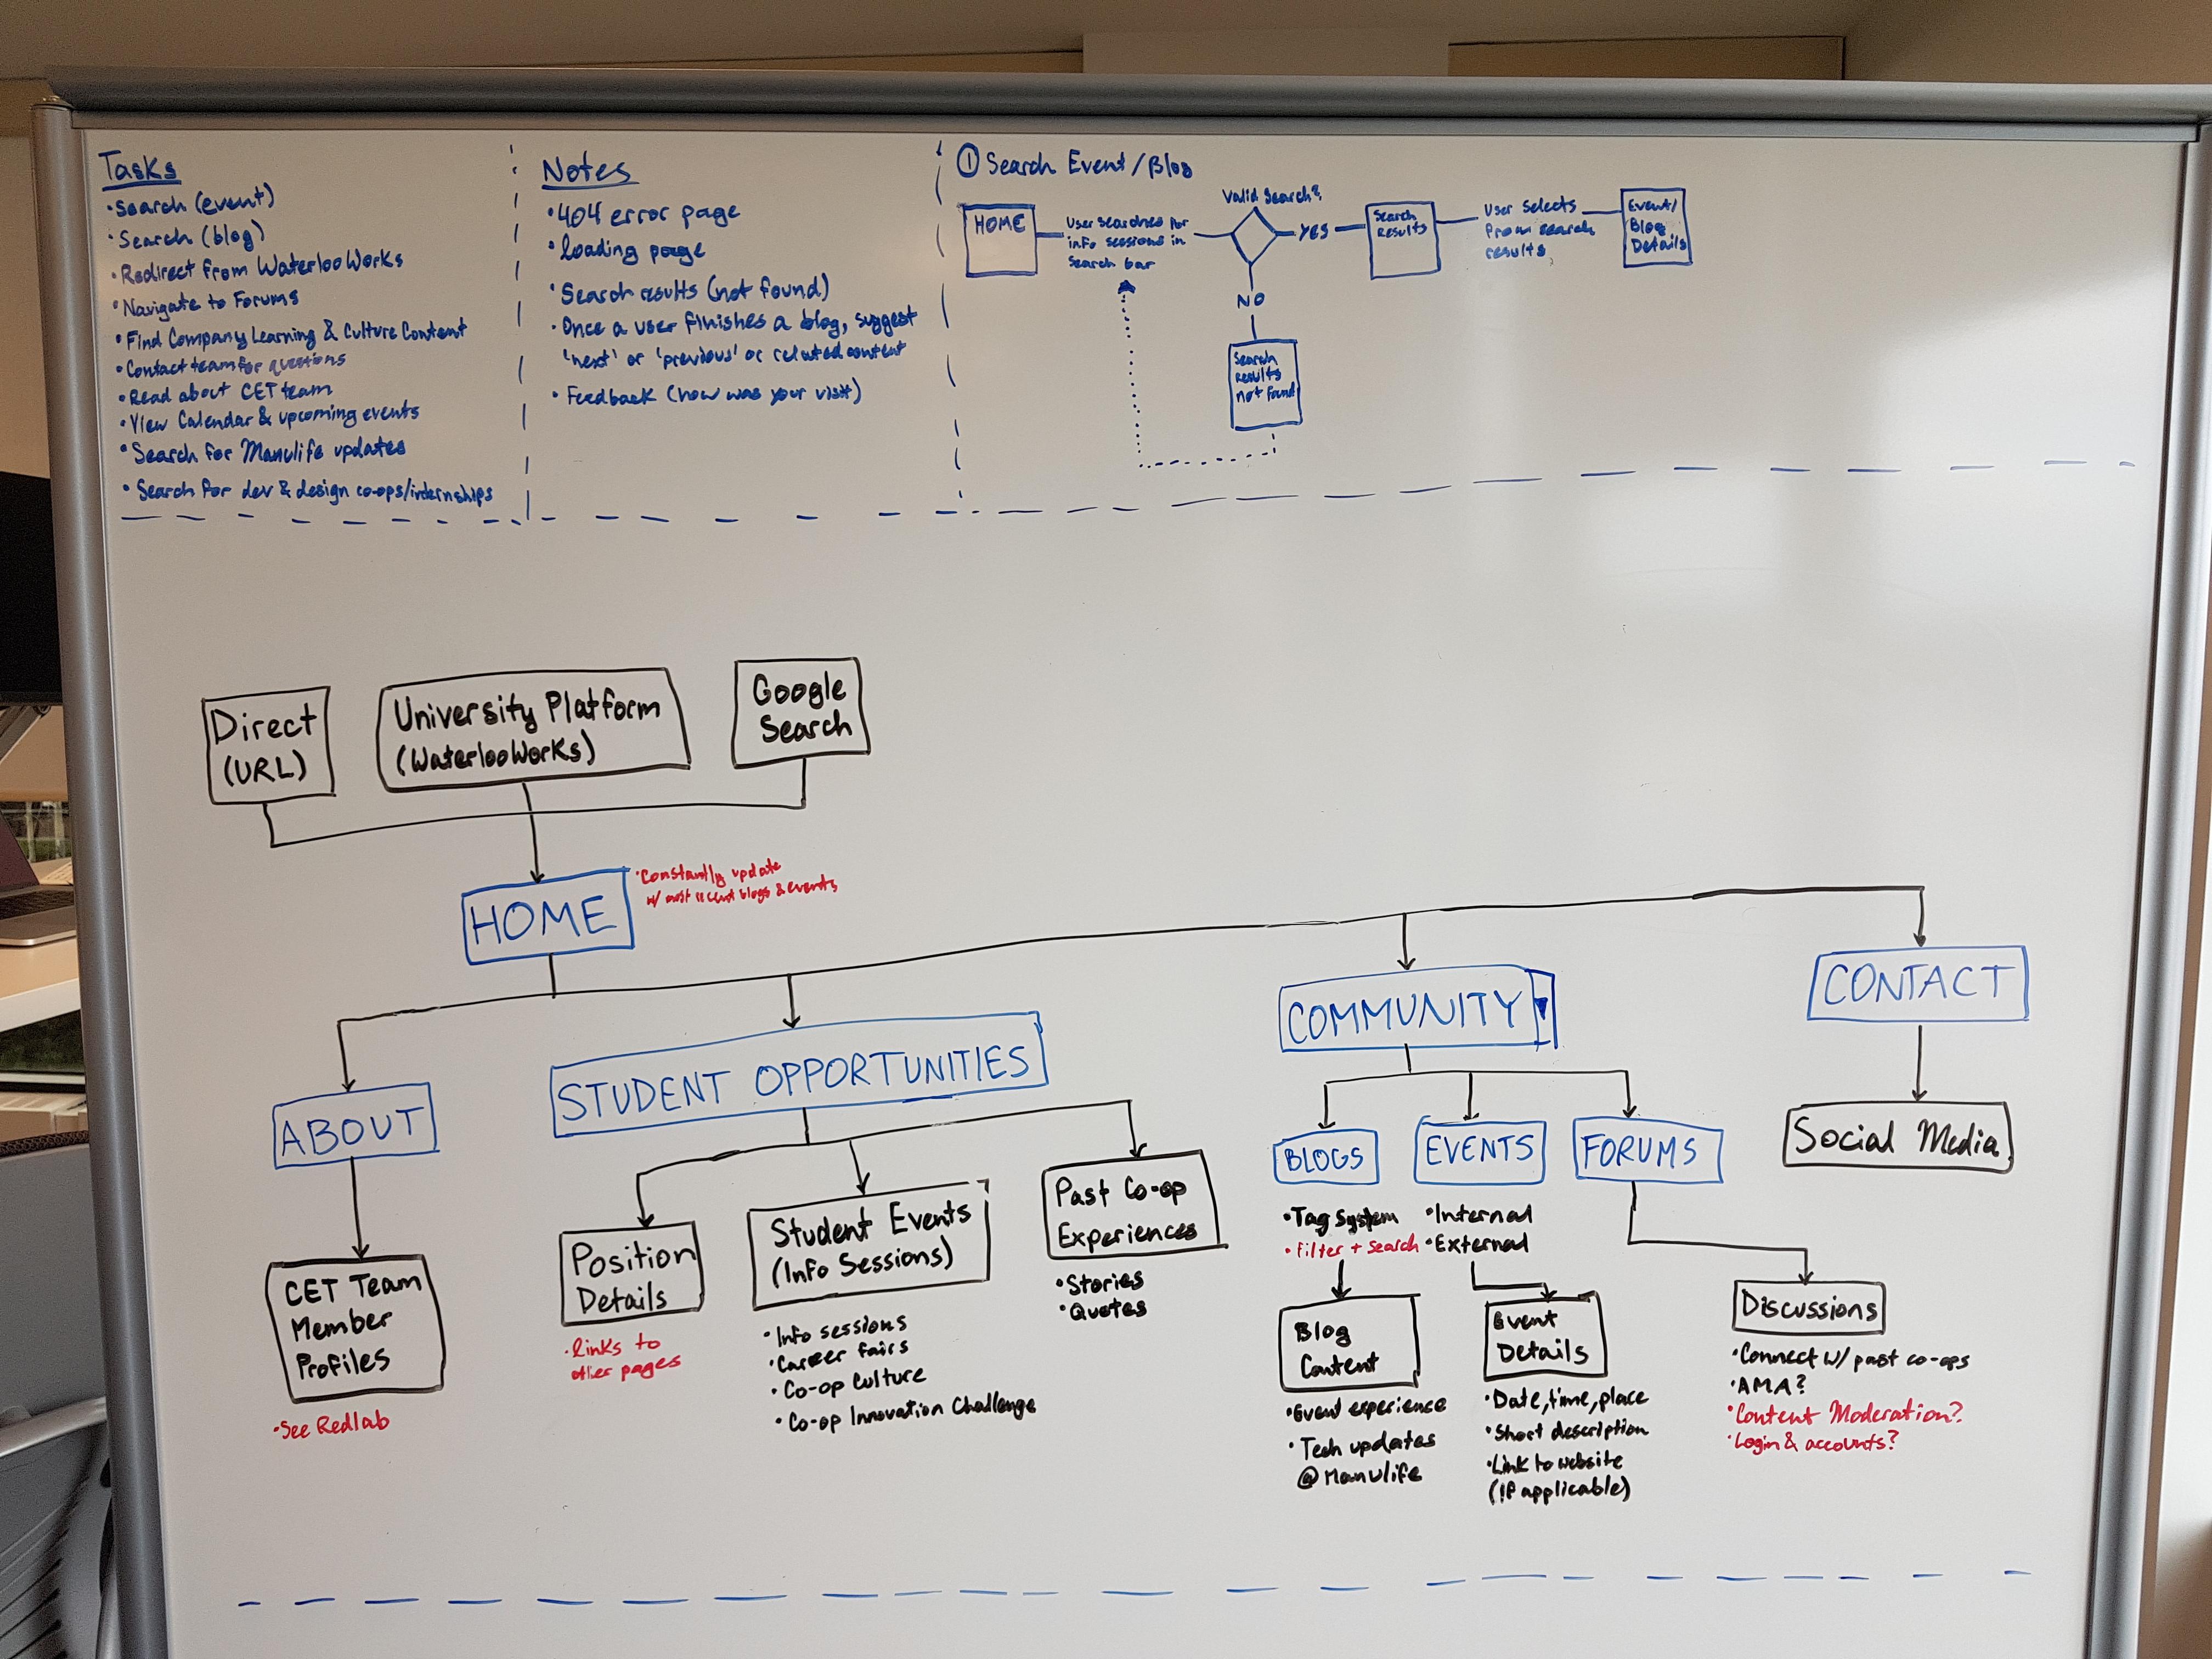 Tasks
• Search (event)
• Search (blog)
• Redirect from WaterlooWorks
• Navigate to Forums
• Find Company Learning & Culture Content
• Contact team for questions
• Read about CET team
• View Calendar & upcoming events
• Search for Manulife updates
• Search for dev & design co-ops/internships
Notes
• 404 error page
• loading page
• Search results (not found)
• Once a user finishes a blog, suggest
'next' or 'previous' or related content
• Feedback (how was your visit)
① Search Event/Blog
HOME
User searches for
info sessions in
search bar
Valid Search?
YES
Search
Results
User selects
from search
results.
Event/
Blog
Details
NO
Search
results
not found
Direct
(URL)
University Platform
(WaterlooWorks)
Google
Search
HOME
• Constantly update
w/ most recent blogs & events
ABOUT
STUDENT OPPORTUNITIES
COMMUNITY
CONTACT
CET Team
Member
Profiles
• See Redlab
Position
Details
• links to
other pages
Student Events
(Info Sessions)
• Info sessions
• Career fairs
• Co-op Culture
• Co-op Innovation Challenge
Past Co-op
Experiences
• Stories
• Quotes
BLOGS
• Tag System
• Filter + Search
Blog
Content
• Event experience
• Tech updates
@ Manulife
EVENTS
• Internal
• External
Event
Details
• Date, time, place
• Short description
• Link to website
(if applicable)
FORUMS
Discussions
• Connect w/ past co-ops
• AMA?
• Content Moderation?
• Login & accounts?
Social Media